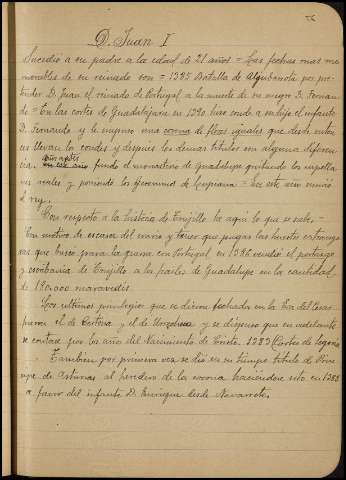 D. Juan I
Sucedio a su padre a la edad de 21 años = Las fechas mas me
morables de su reinado son = 1385 Batalla de Aljubarrota por pre-
tender D. Juan el reinado de Portugal a la muerte de su suegro D. Fernan-
do = En las cortes de Guadalajara en 1390 hizo conde a su hijo el infante
D. Fernando y le impuso una corona de flores iguales que desde enton-
ces llevan los condes y despues los demas titulos con alguna diferen-
cia. Año antes fundó el monasterio de Guadalupe quitando los capella-
nes reales y poniendo los Geronimos de Lupiana = En este año murió
el rey.
Con respecto a la historia de Trujillo he aqui lo que se sabe. =
Con motivo de escasez del erario y tener que pagar las huestes extranje-
ras que buscó para la guerra con Portugal, en 1386 vendió el portazgo
y escribania de Trujillo a los frailes de Guadalupe en la cantidad
de 130.000 maravedis.
Los ultimos privilegios que se dieron fechados en la Era del Cesar
fueron el de Cortina y el de Orozchua y se dispuso que en adelante
se contase por los años del Nacimiento de Cristo. 1383 (Cortes de Segovia
Tambien por primera vez se dió en su tiempo titulo de Prin
cipe de Asturias al heredero de la corona haciendose esto en 1388
a favor del infante D. Enrique desde Navarrete.